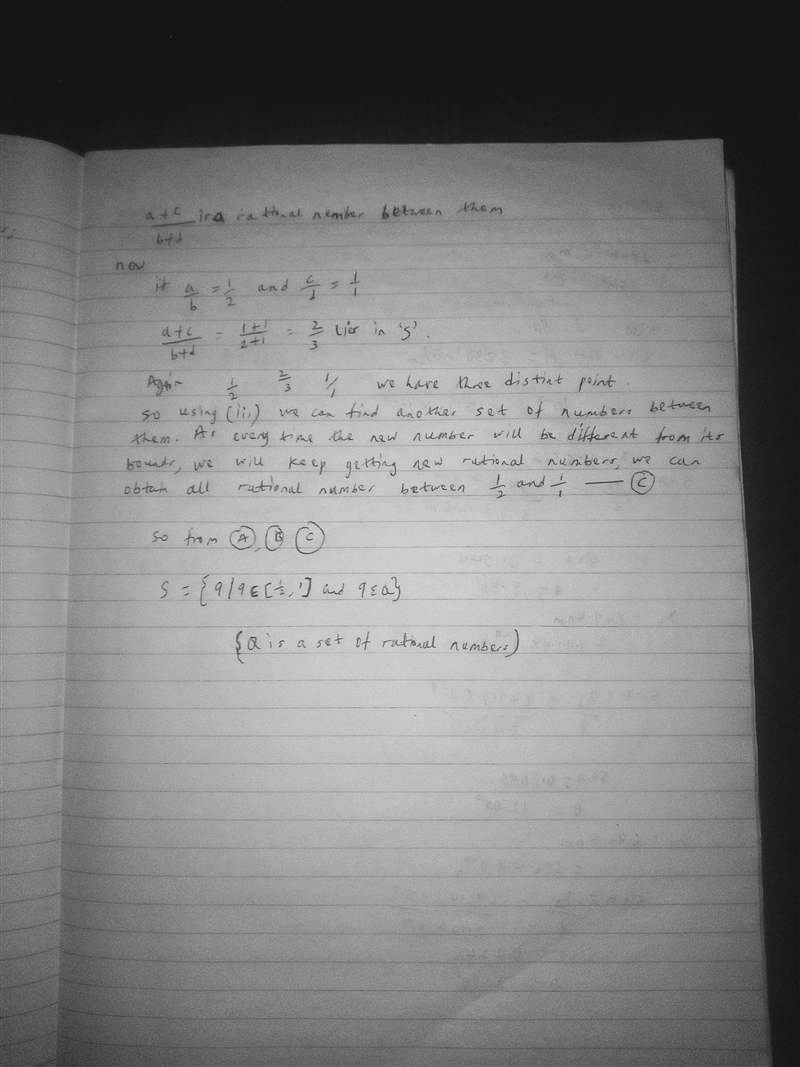 a+c/b+d is a rational number between them
now
if a/b = 1/2 and c/d = 1/1
a+c/b+d = 1+1/2+1 = 2/3 lies in 's'.
Again 1/2 2/3 1/1 we have three distint point.
so using (iii) we can find another set of numbers between
them. As every time the new number will be different from its
bounds, we will keep getting new rational numbers, we can
obtain all rational number between 1/2 and 1/1 — (C)
so from (A), (B) (C)
S = {q/q ε [1/2, 1] and q ε Q}
{Q is a set of rational numbers)